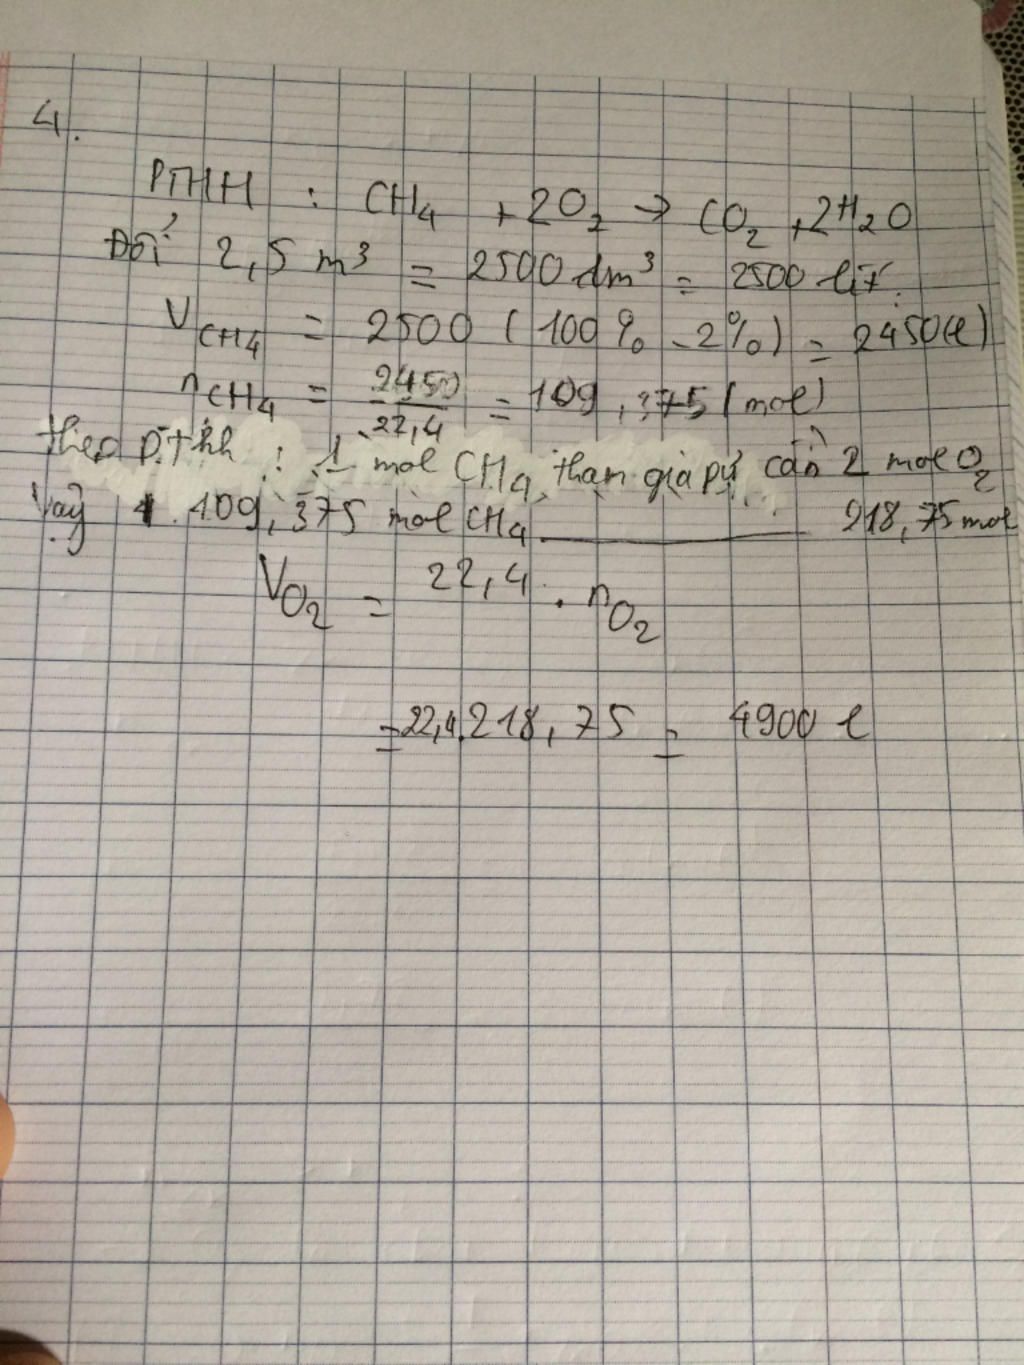 4.
PTHH : CH₄ + 2O₂ → CO₂ + 2H₂O
Đổi 2,5 m³ = 2500 dm³ = 2500 lít.
V CH₄ = 2500 (100% - 2%) = 2450(l)
n CH₄ = 2450/22,4 = 109,375 (mol)
theo pthh : 1 mol CH₄ tham gia pứ cần 2 mol O₂
Vậy 109,375 mol CH₄ ———— 218,75 mol
V O₂ = 22,4 . n O₂
= 22,4.218,75 = 4900 l